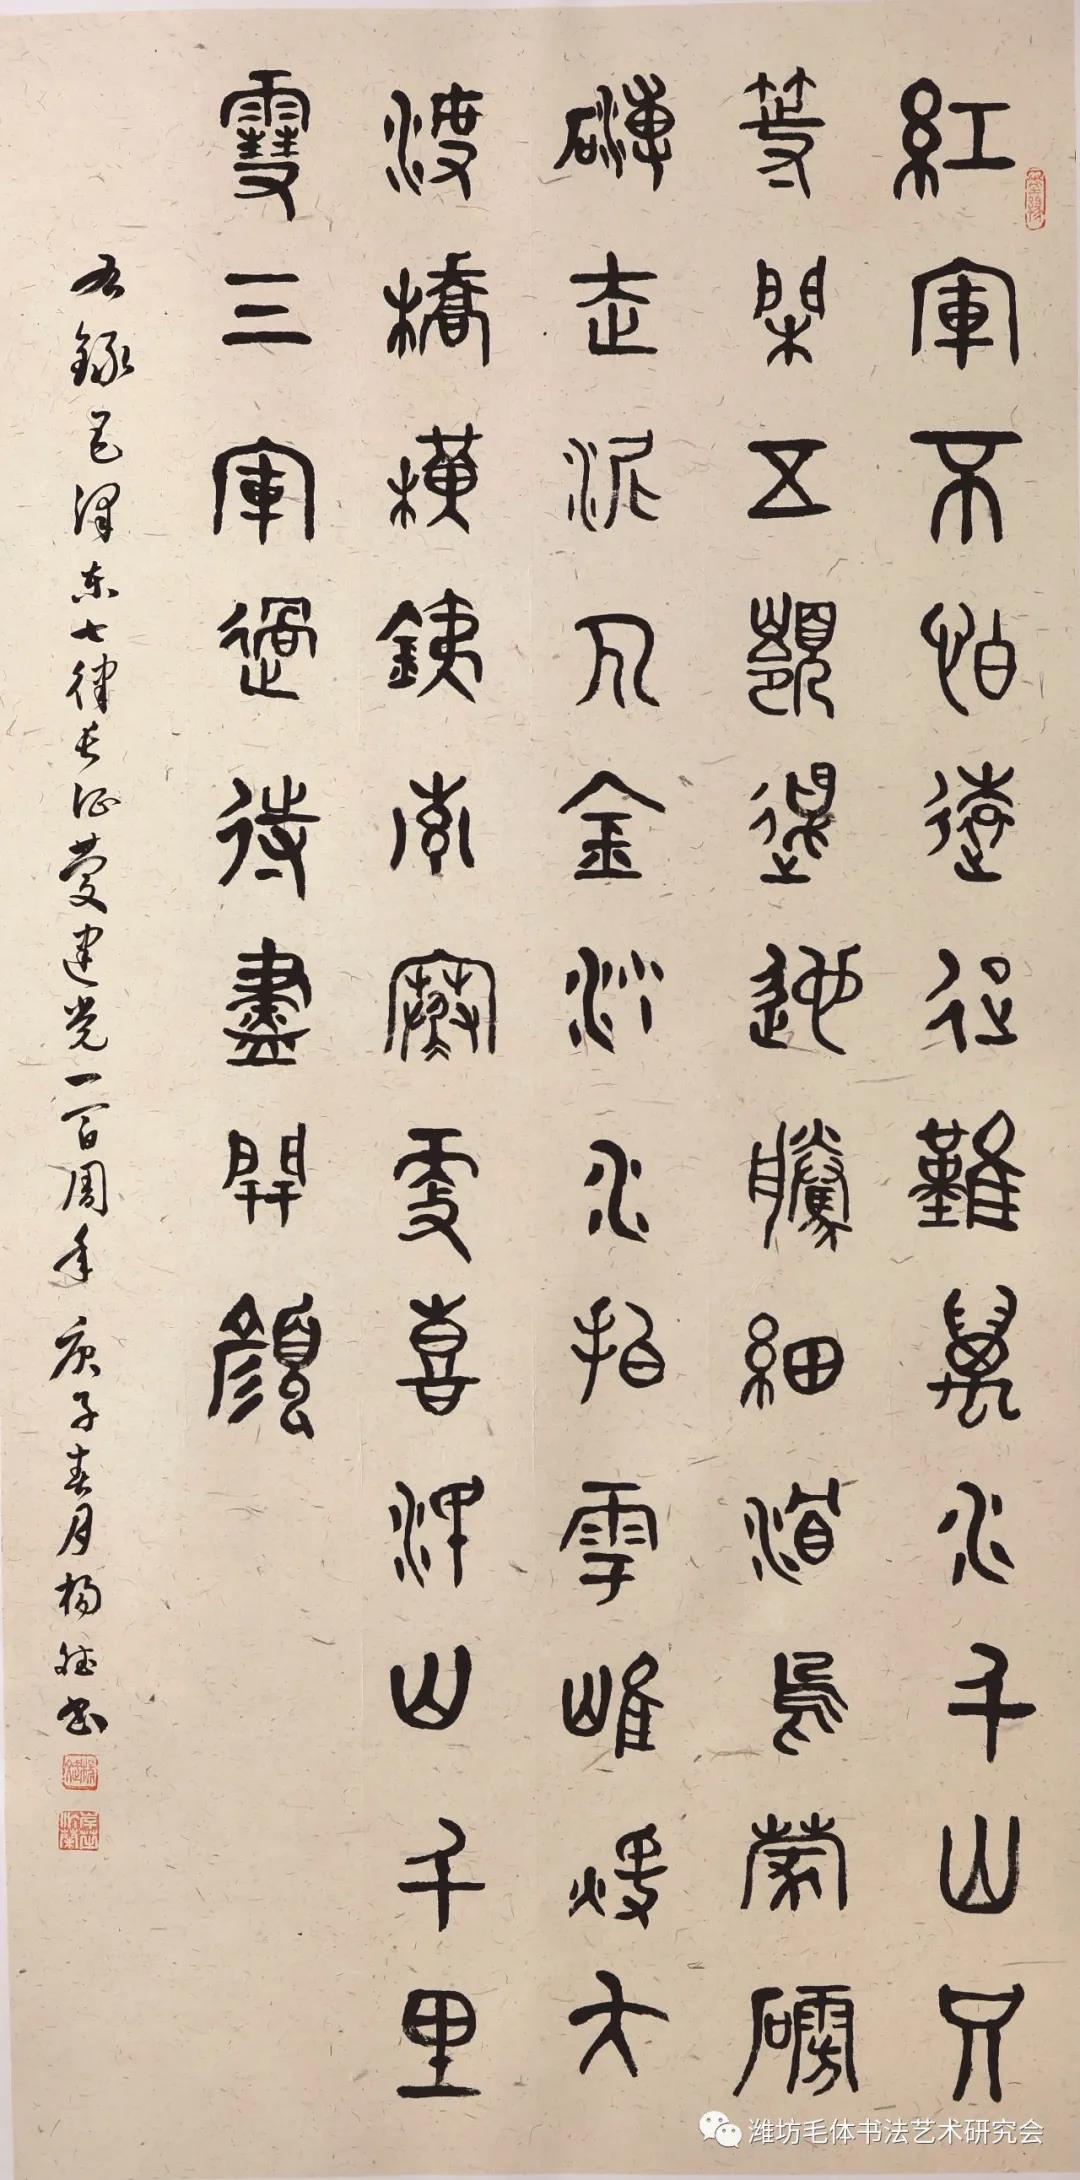 紅軍不怕遠征難萬水千山只
等閑五嶺逶迤騰細浪烏蒙磅
礴走泥丸金沙水拍雲崖暖大
渡橋橫鐵索寒更喜岷山千里
雪三軍過後盡開顏
右錄毛澤東七律长征慶建党一百周年庚子春月楊书
潍坊毛体书法艺术研究会